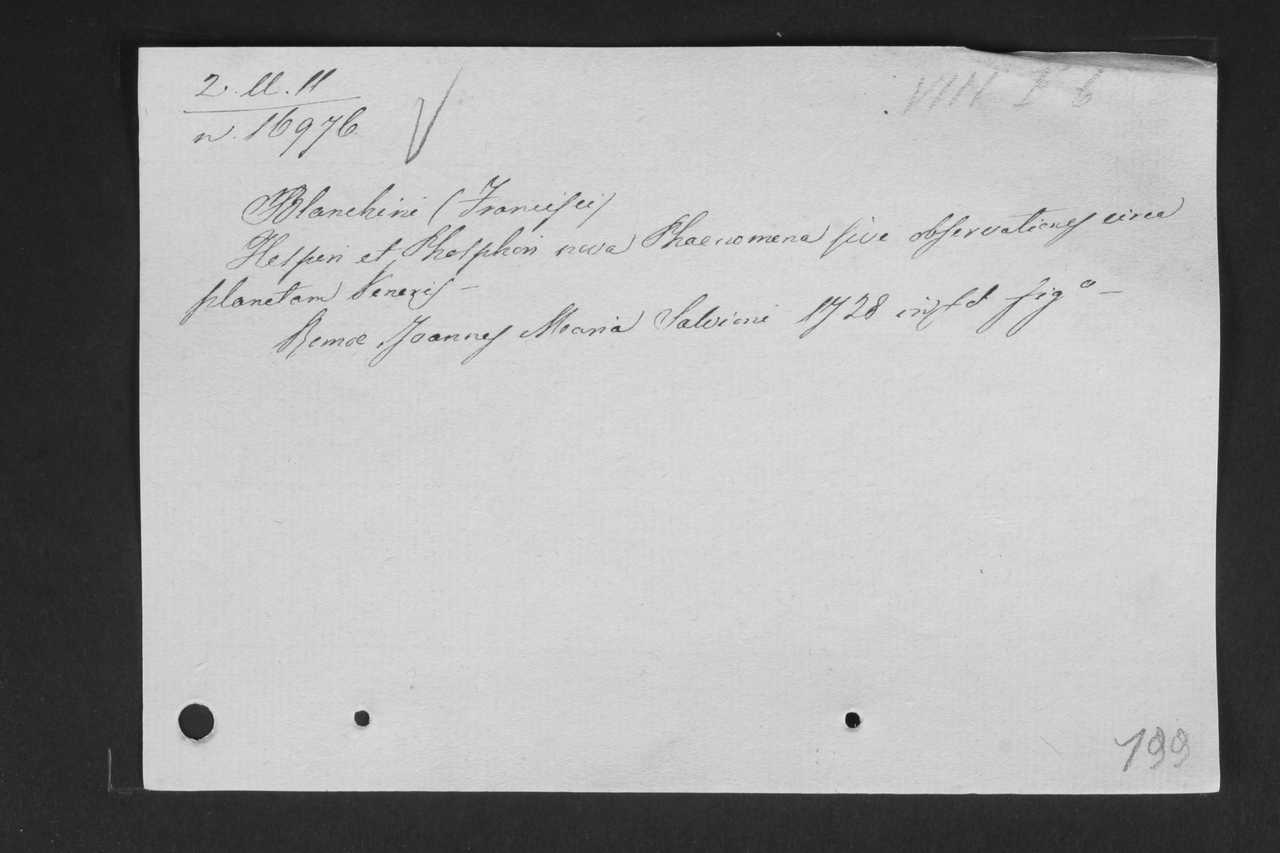 2. ll. 11
n. 16976
VIII I 6
Blanchini (Francisci)
Hesperi et Phosphori nova Phaenomena sive observationes circa
planetam Veneris –
Romae Joannes Maria Salvioni 1728 in f.º figº –
199